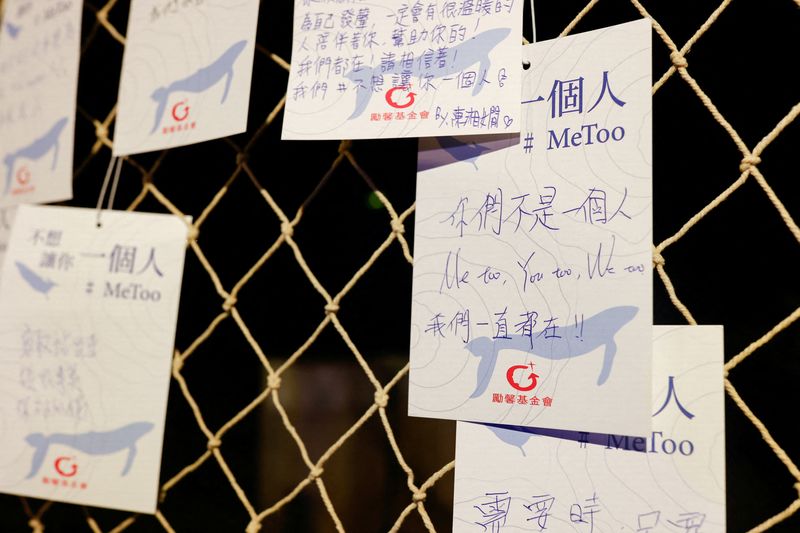 MeToo
為自己發聲，一定會有很溫暖的
人陪伴著你，幫助你的！
我們都在！請相信著！
我們#不想讓你一個人
勵馨基金會
一個人
# MeToo
你們不是一個人
Me too, You too, We too
我們一直都在!!
勵馨基金會
不想
讓你
一個人
# MeToo
勵馨基金會
勵馨基金會
人
# MeToo
需要時